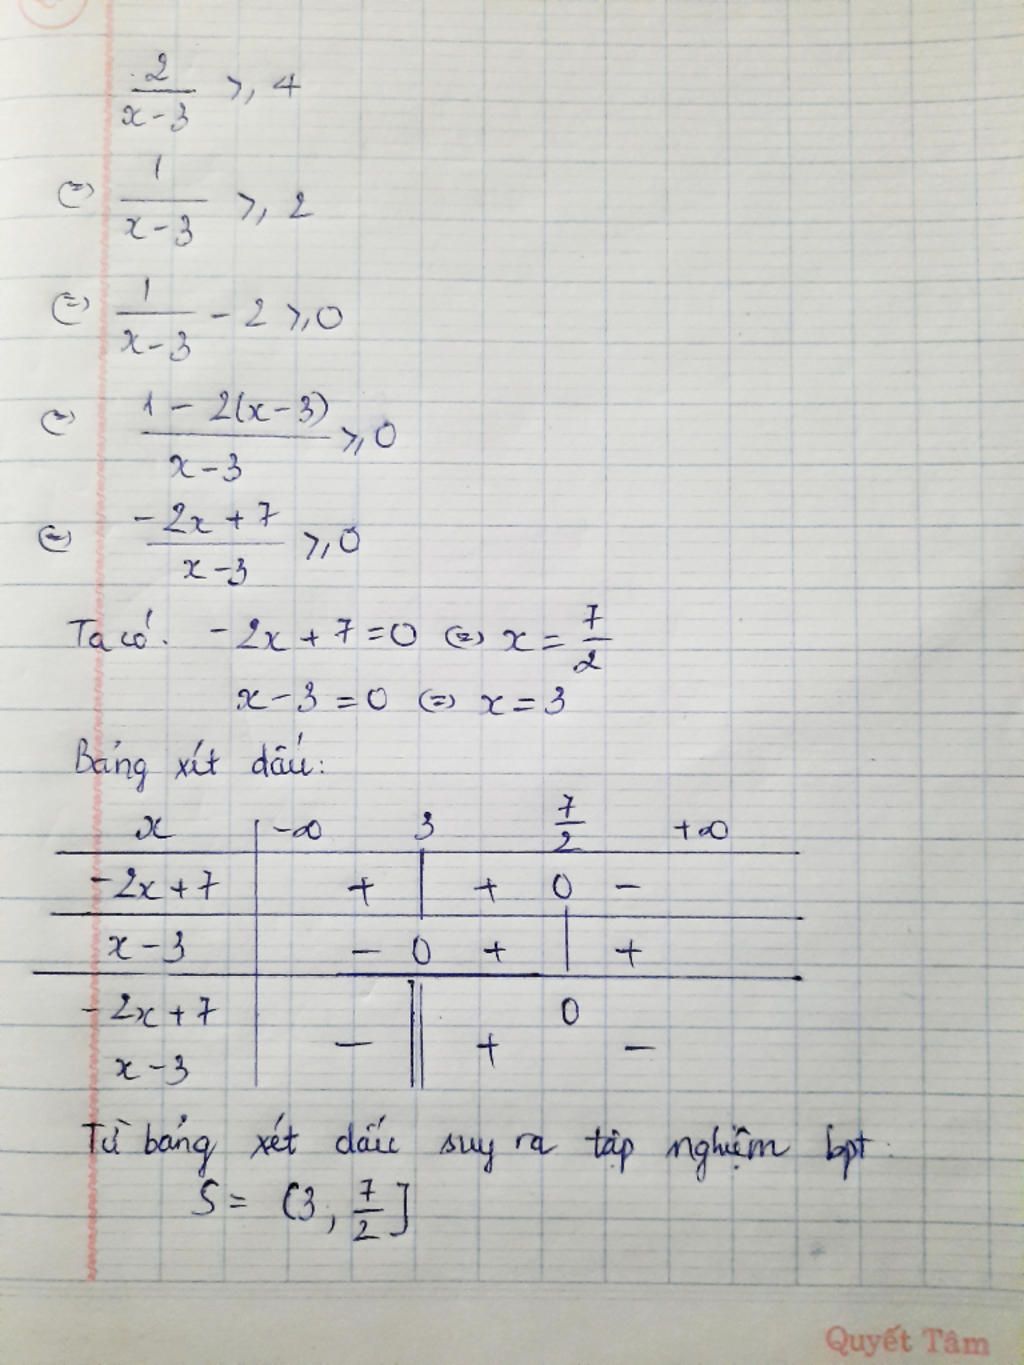 2/(x-3) ≥ 4
⇔ 1/(x-3) ≥ 2
⇔ 1/(x-3) - 2 ≥ 0
⇔ (1 - 2(x-3))/(x-3) ≥ 0
⇔ (-2x+7)/(x-3) ≥ 0
Ta có: -2x+7=0 ⇔ x = 7/2
x-3=0 ⇔ x=3
Bảng xét dấu:
x | -∞ 3 7/2 +∞
-2x+7 | + | + 0 -
x-3 | - 0 + | +
-2x+7 0
| - || + -
x-3
Từ bảng xét dấu suy ra tập nghiệm bpt:
S = (3, 7/2]
Quyết Tâm